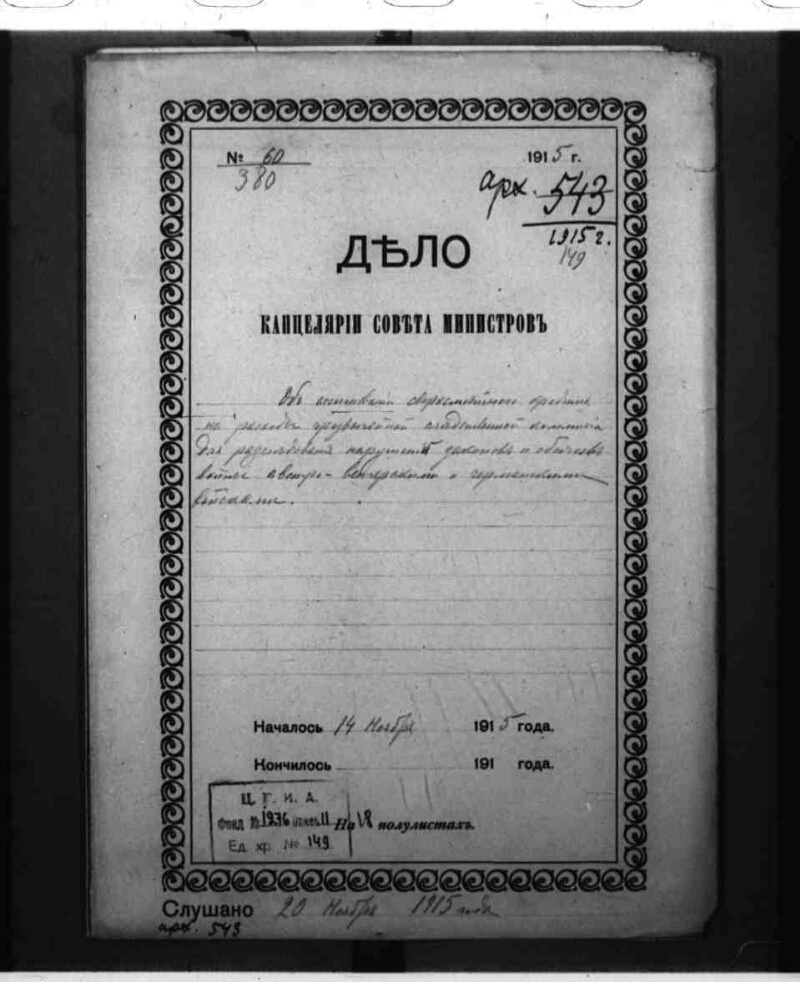 № 60 1915 г.
380
арх. 543
1915 г.
149
ДѢЛО
КАНЦЕЛЯРІИ СОВѢТА МИНИСТРОВЪ
Объ сверхсмѣтнаго кредита
на расходы чрезвычайной слѣдственной комиссіи
для разслѣдованія нарушеній законовъ и обычаевъ
войны австро-венгерскими и германскими
войсками.
Началось 14 Ноября 1915 года.
Кончилось 191 года.
Ц. Г. И. А.
Фонд № опись 11 На 18 полулистахъ.
Ед. хр. № 149
Слушано 20 Ноября 1915 года
арх. 543